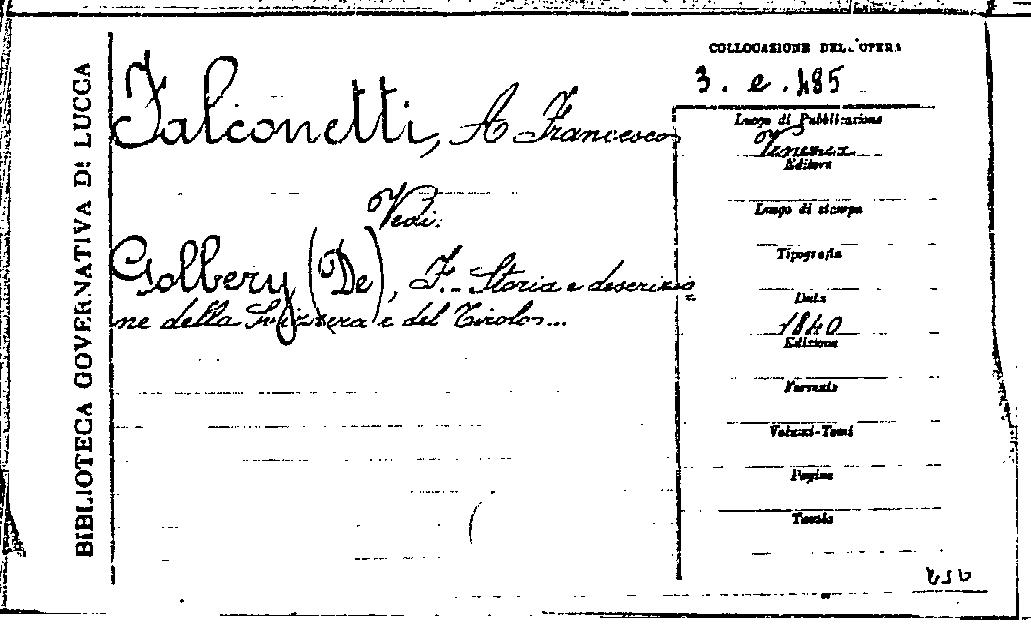 BIBLIOTECA GOVERNATIVA DI LUCCA
COLLOCAZIONE DELL'OPERA
3. e. 485
Falconetti, A Francesco
Vedi:
Golbery (De), F. - Storia e descrizio
ne della Svizzera e del Tirolo...
Luogo di Pubblicazione
Venezia
Editore
Luogo di stampa
Tipografia
Data
1840
Edizione
Formato
Volumi-Tomi
Pagine
Tavole